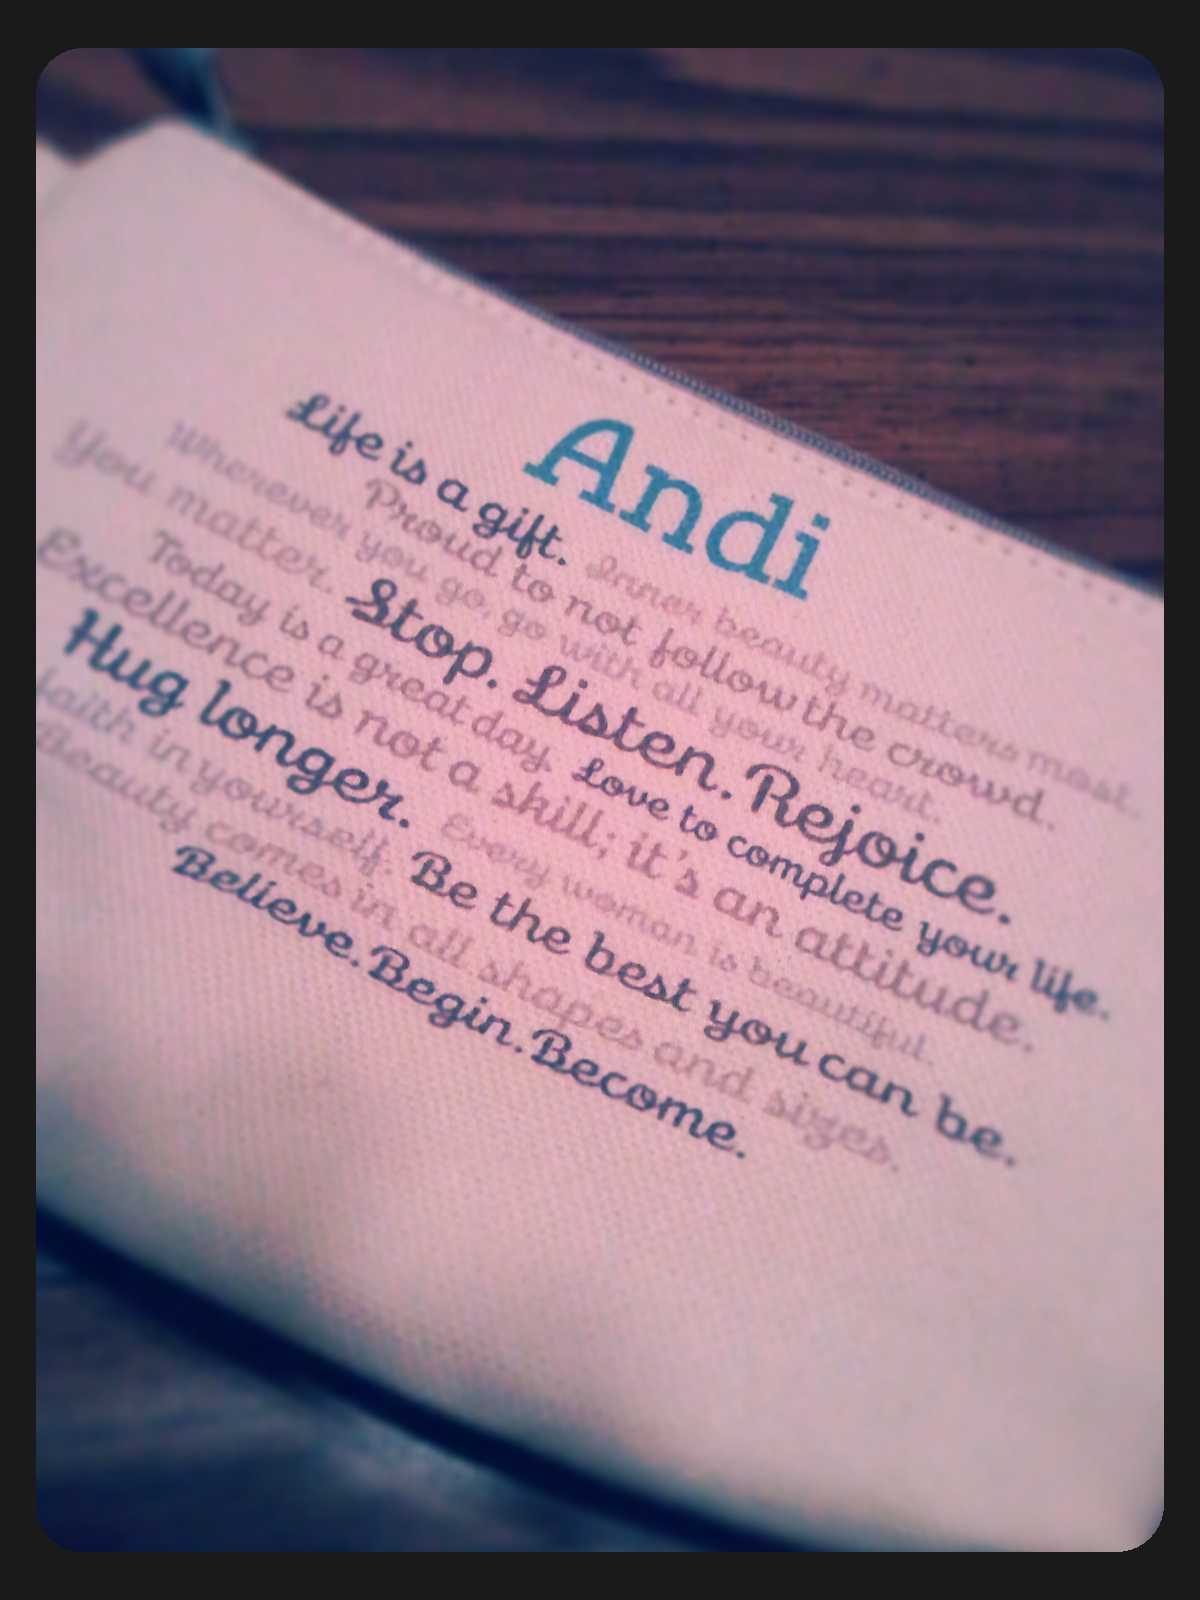 Andi
Life is a gift. Inner beauty matters most.
Proud to not follow the crowd.
Wherever you go, go with all your heart.
You matter. Stop. Listen. Rejoice.
Today is a great day. Love to complete your life.
Excellence is not a skill; it's an attitude.
Hug longer. Every woman is beautiful.
faith in yourself. Be the best you can be.
Beauty comes in all shapes and sizes.
Believe. Begin. Become.